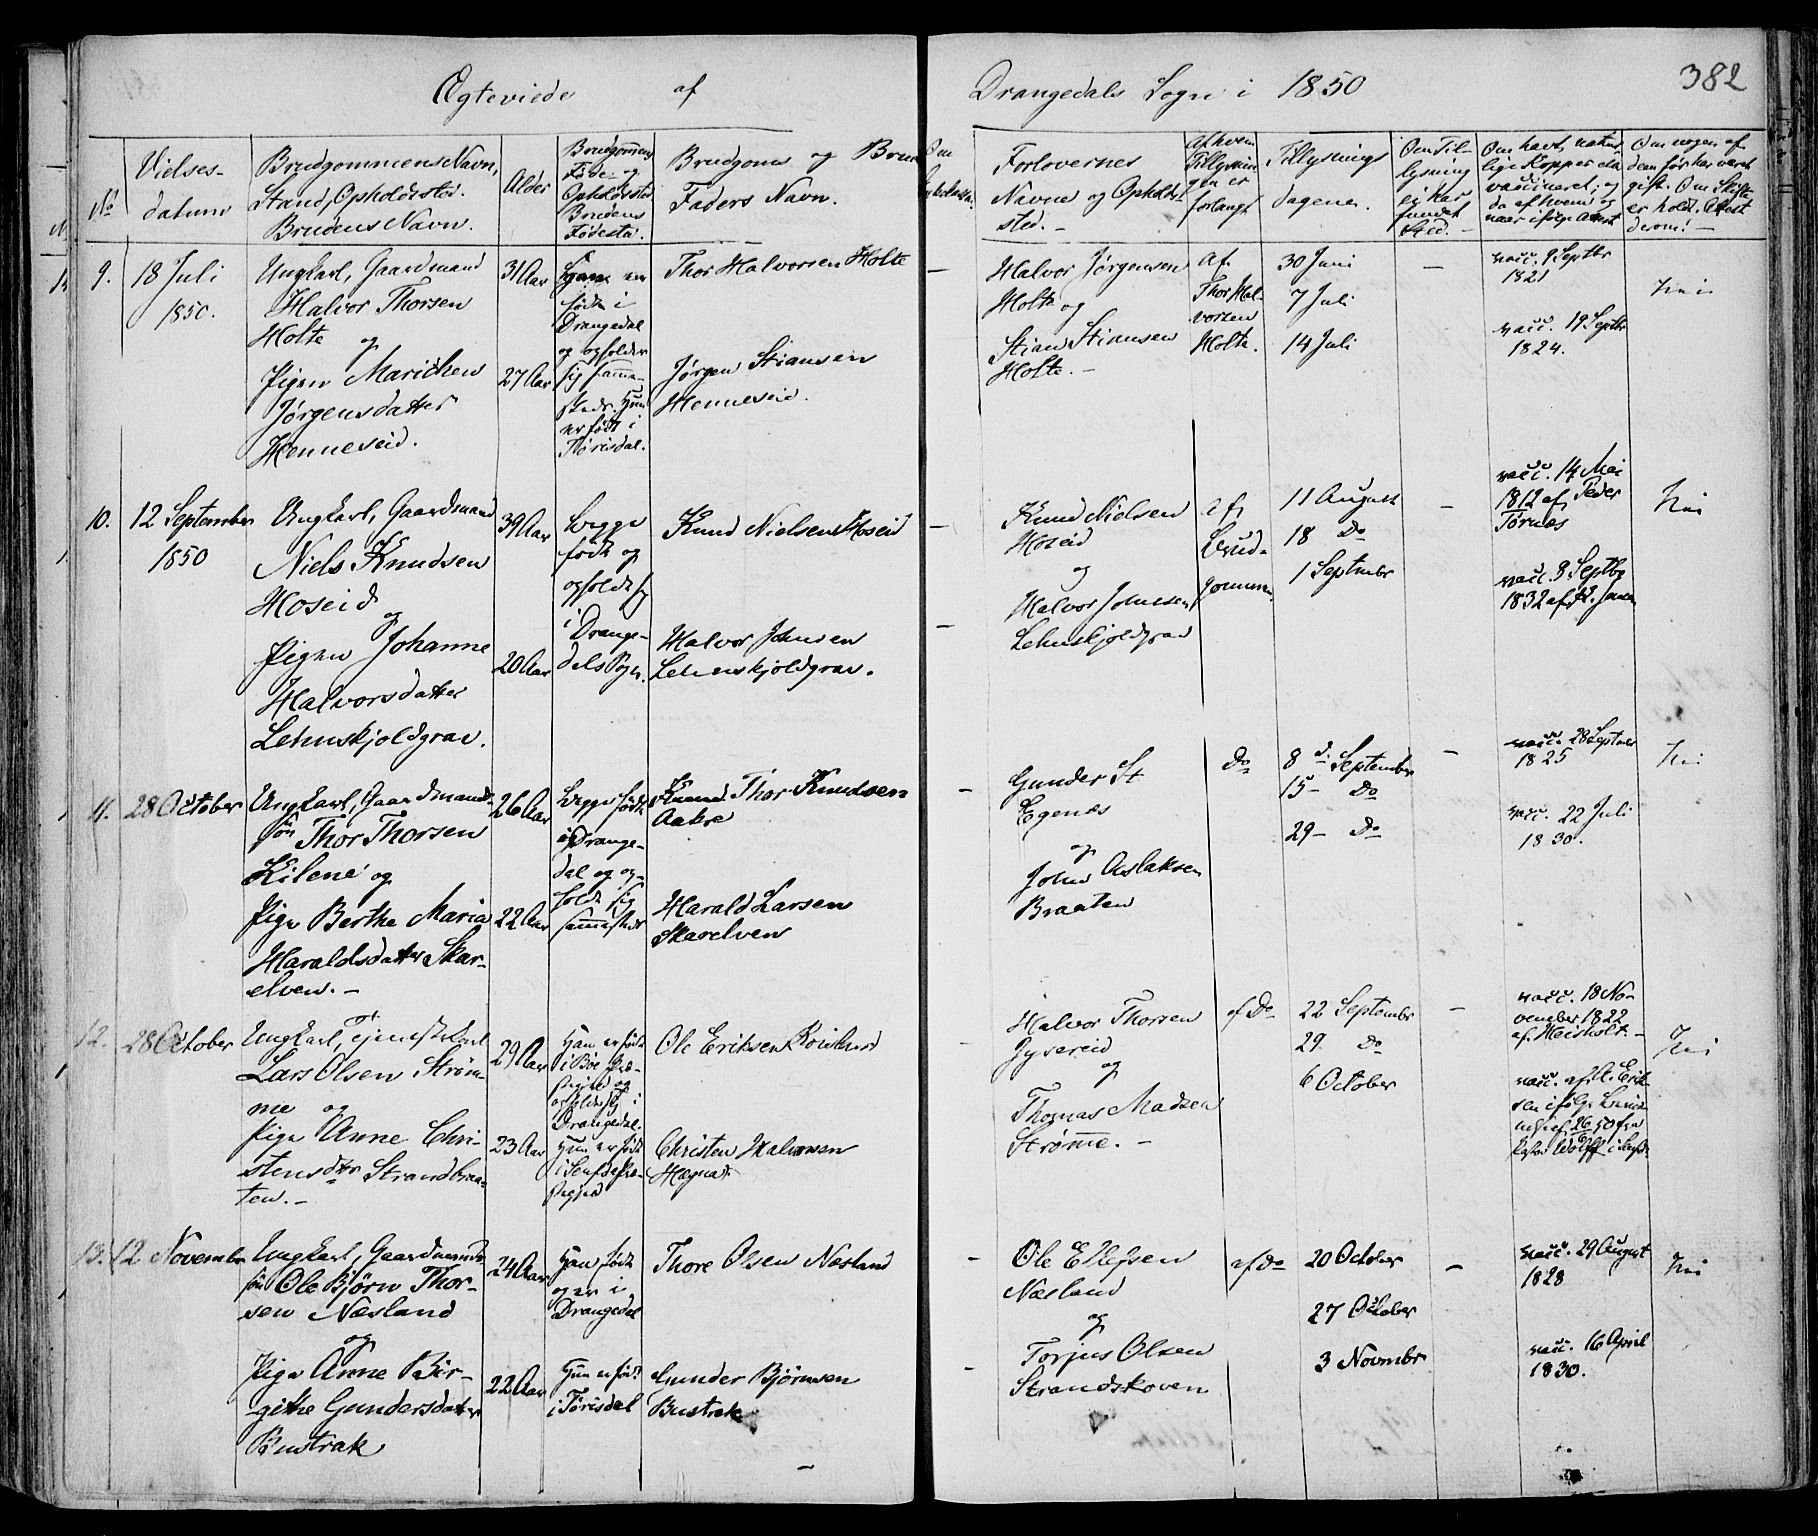 Ægteviede af Drangedals Sogn i 1850 382
No
Vielses-
datum
Brudgommens Navn,
Stand, Opholdssted.
Brudens Navn.
Alder
Brudgommens
Føde- og
Opholdssted
Brudens
Fødested.
Brudgoms og Brudens
Faders Navn.
Forlovernes
Navne og Opholds-
sted.
Af hvem
Tillysnin-
gen er
forlangt
Tillysnings
dagene.
Om Til-
lysning
ej har
fundet
Sted.
Om havt natur-
lige Kopper ell.
vaccineret, og
da af hvem og
naar ifølge Attest
Om nogen af
dem før har været
gift. Om Skifte
er holdt. Attest
derom.
9. 18 Juli
1850.
Ungkarl, Gaardmand
Halvor Thorsen
Holte og
Pigen Marichen
Jørgensdatter
Henneseid.
31 Aar
27 Aar
er
født i
Drangedal
og opholder
sig samme-
steds. Hun
er født i
Tørisdal.
Thor Halvorsen Holte
Jørgen Stiansen
Henneseid.
Halvor Jørgensen
Holte og
Stian Stiansen
Holte.
Af
Thor Hal-
vorsen
Holte.
30 Juni
7 Juli
14 Juli
vacc. 9 Septbr
1821
vacc. 19 Septbr
1824.
Nei
10. 12 September
1850
Ungkarl, Gaardmand
Niels Knudsen
Hoseid
og
Pigen Johanne
Halvorsdatter
Lehnskjoldgrav.
39 Aar
20 Aar
Begge
født og
opholdt sig
i Drange-
dals Sogn.
Knud Nielsen Hoseid
Halvor Johnsen
Lehnskjoldgrav.
Knud Nielsen
Hoseid
og
Halvor Johnsen
Lehnskjoldgrav
af
Brud-
gommen
11 August
18 Do
1 Septembr
vacc. 14 Mai
1812 af Peder
Tørnes
vacc. 8 Septbr
1832 af
Nei
11. 28 October
Ungkarl, Gaardmands-
søn Thor Thorsen
Kilene og
Pige Berthe Maria
Haraldsdatter Skar-
elven.
26 Aar
22 Aar
Begge født
i Drange-
dal og op-
holdt sig
sammesteds
Thor Knudsen
Aakre
Harald Larsen
Skarelven
Gunder St
Egenæs
og
John Aslaksen
Braaten
Do
8 d. September
15 - Do
29 - Do
vacc. 28 Septmbr
1825
vacc. 22 Juli
1830.
Nei
12. 28 October
Ungkarl, Tjenestekarl
Lars Olsen Strøm-
me og
Pige Anne Chri-
stensdtr Strandbraa-
ten.
29 Aar
23 Aar
Han er født
i Bøe Præ-
stegjeld og
opholder sig i
Drangedal.
Hun er født
i Præ-
stegjeld
Ole Eriksen
Christen Halvorsen
Halvor Thorsen
Gysereid
og
Thomas Madsen
Strømme.
af Do
22 Septembr
29. Do
6 October
vacc. 18 No-
vember 1822
af Heisholt.
vacc. af Erik-
sen ifølge
Nei
13. 12 November
Ungkarl, Gaardmands-
søn Ole Bjørn Thor-
sen Næsland
og
Pige Anne Bir-
githe Gundersdatter
Bustrak
24 Aar
22 Aar
Han født
og er i
Drangedal
Hun er født
i Tørisdal
Thore Olsen Næsland
Gunder Bjørnsen
Bustrak
Ole Ellefsen
Næsland
og
Torjus Olsen
Strandskoven
af do
20 October
27 October
3 Novmbr
vacc. 29 August
1828
vacc. 16 April
1830.
Nei